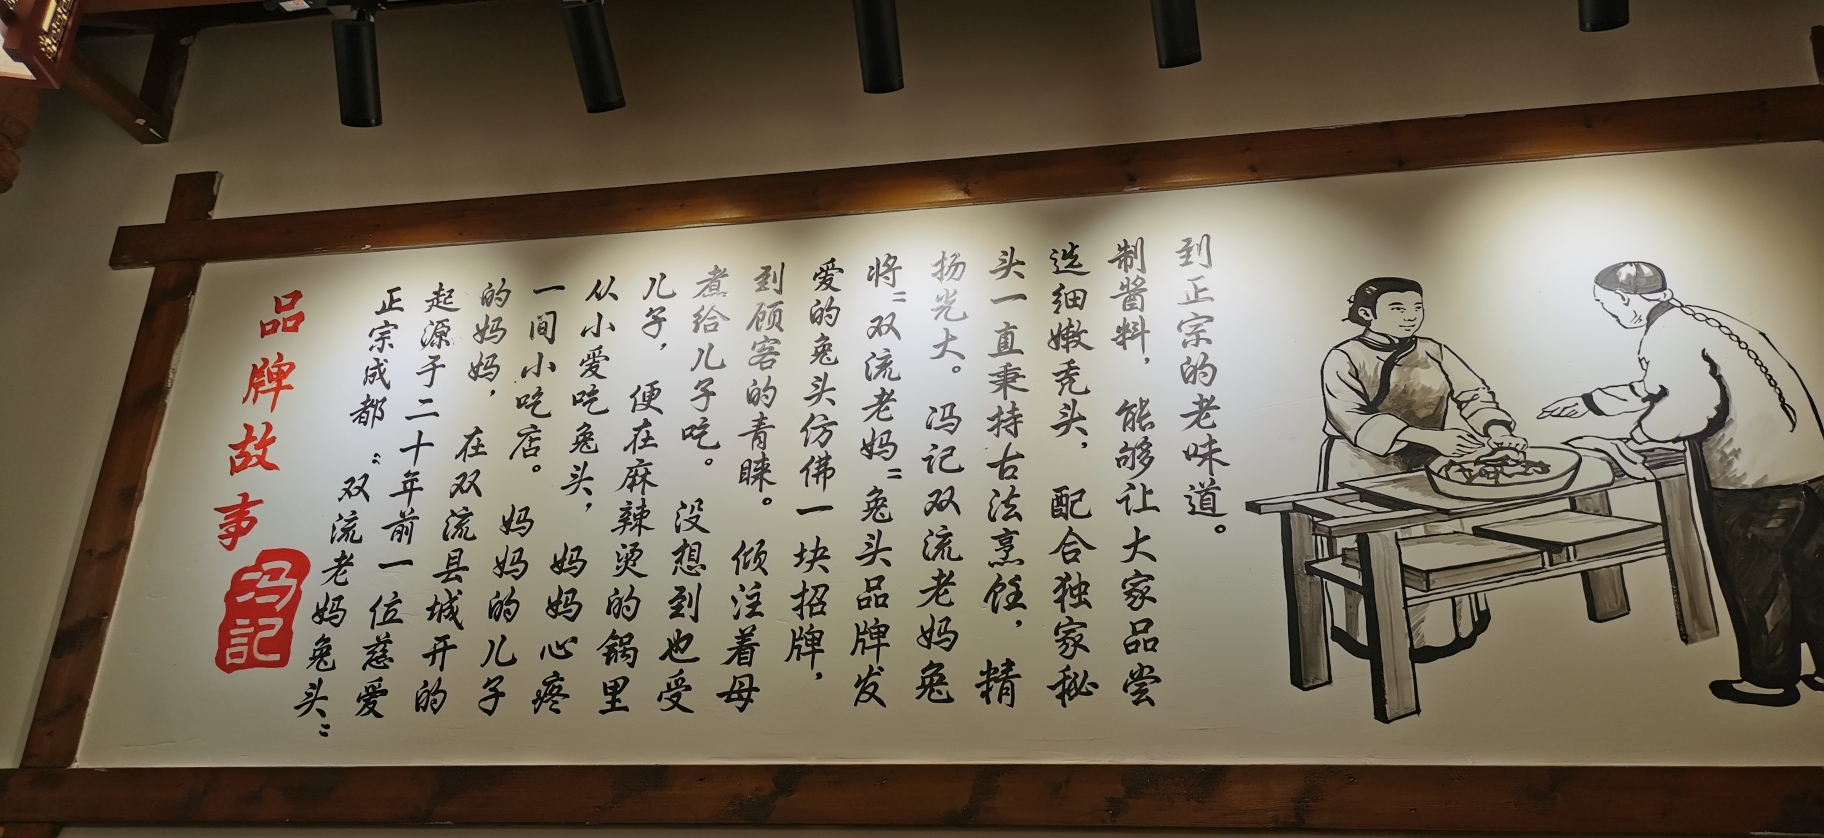 品牌故事
冯記
正宗成都“双流老妈兔头”
起源于二十年前一位慈爱
的妈妈，在双流县城开的
一间小吃店。妈妈的儿子
从小爱吃兔头，妈妈心疼
儿子，便在麻辣烫的锅里
煮给儿子吃。没想到也受
到顾客的青睐。倾注着母
爱的兔头仿佛一块招牌，
将“双流老妈”兔头品牌发
扬光大。冯记双流老妈兔
头一直秉持古法烹饪，精
选细嫩秃头，配合独家秘
制酱料，能够让大家品尝
到正宗的老味道。